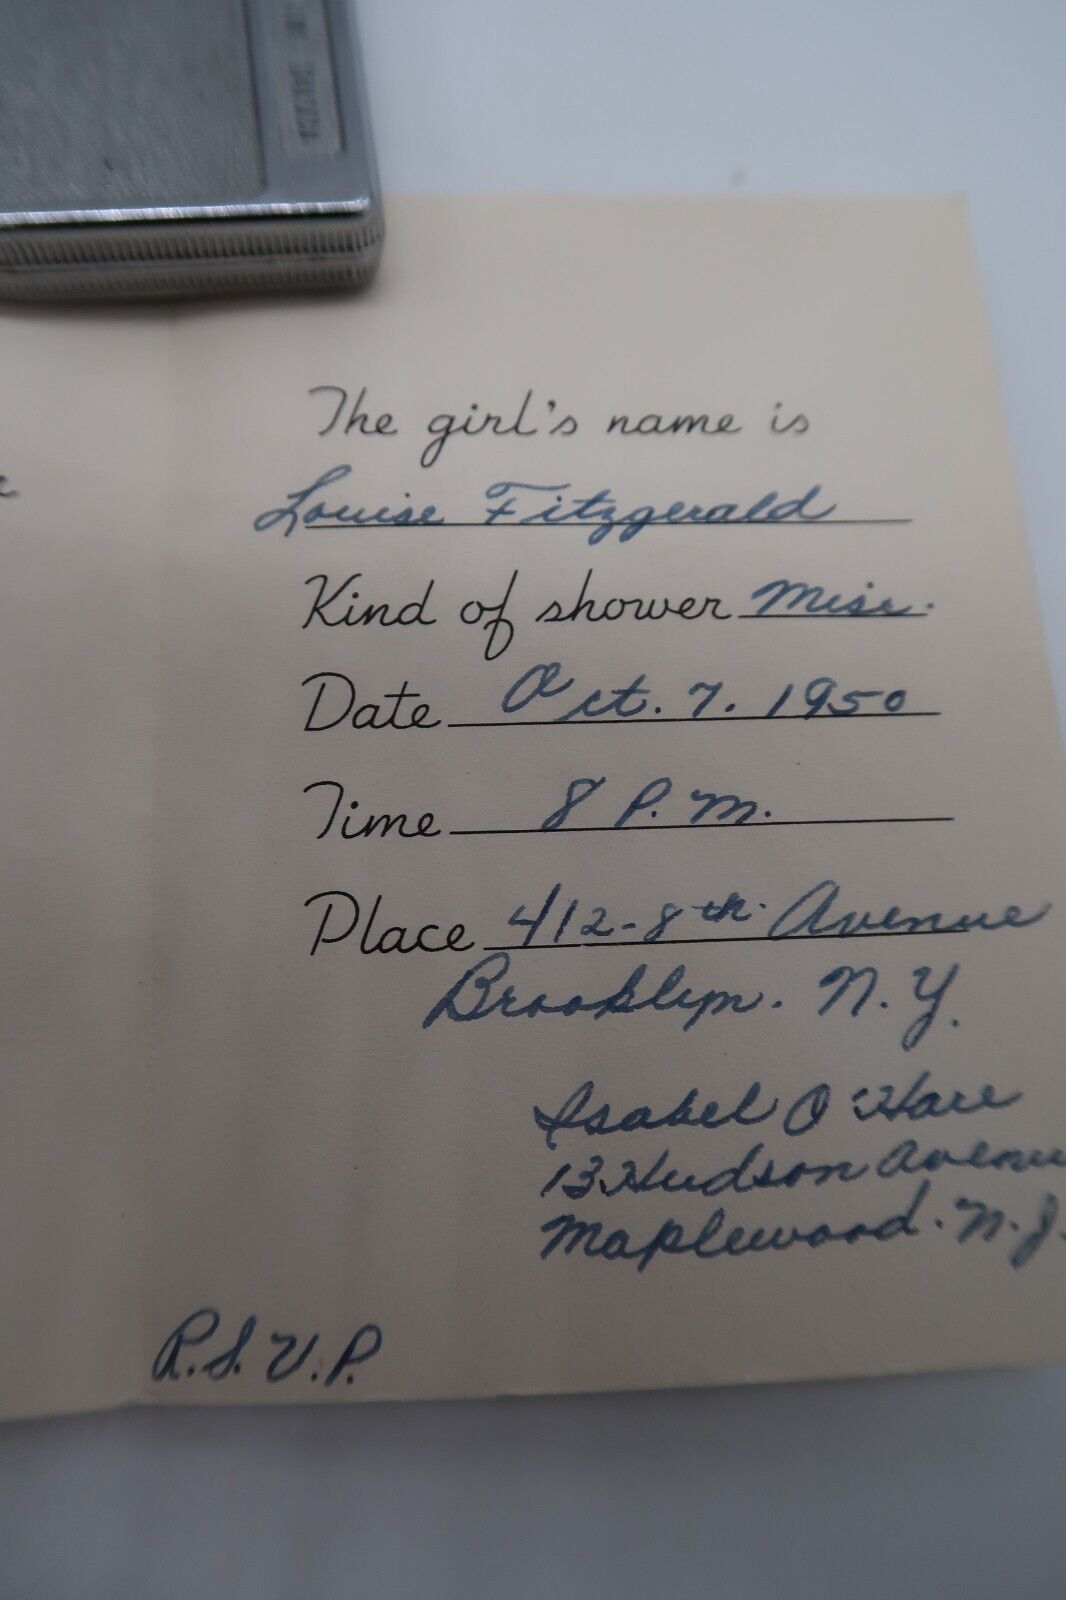 The girl's name is
Louise Fitzgerald
Kind of shower Misc.
Date Oct. 7. 1950
Time 8 P.M.
Place 412-8th. Avenue
Brooklyn. N.Y.
Isabel O'Hare
13 Hudson Avenue
Maplewood. N.J.
R.S.V.P.